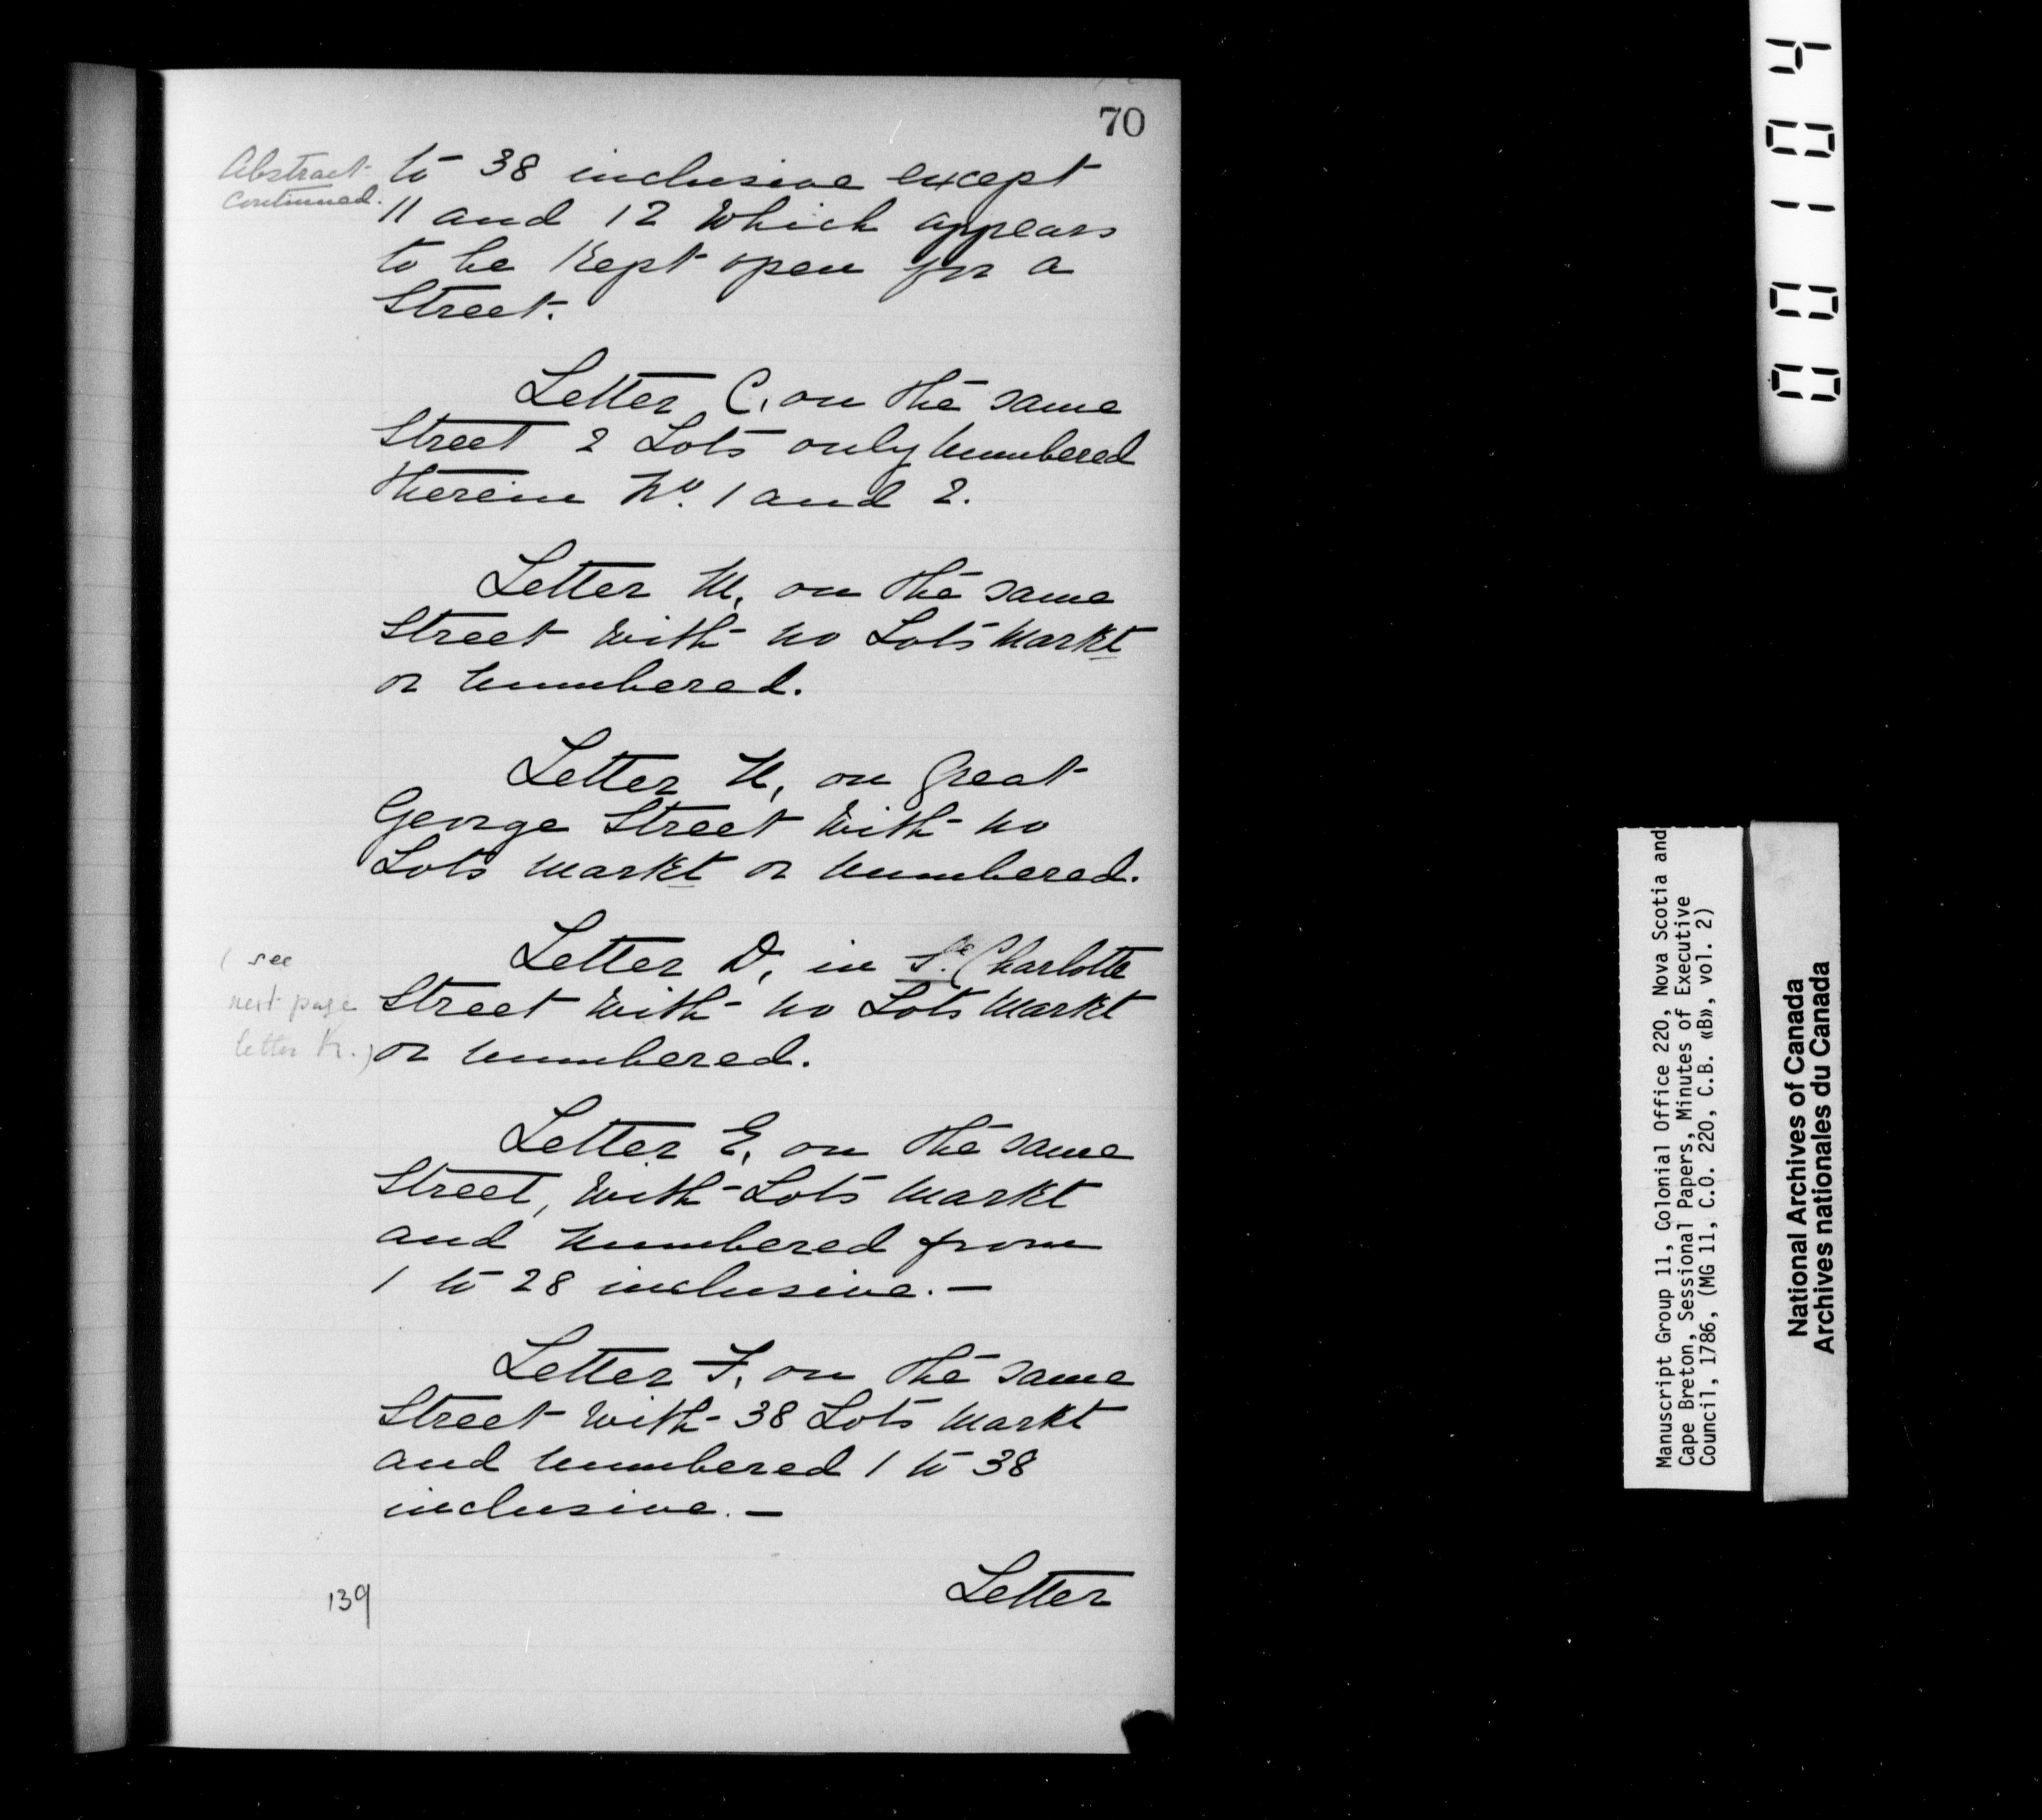 70
Abstract
continued.
to 38 inclusive except
11 and 12 which appears
to be kept open for a
Street.
Letter C, on the same
Street 2 Lots only numbered
therein No. 1 and 2.
Letter M, on the same
Street with no Lots markt
or numbered.
Letter N, on Great
George Street with no
Lots markt or numbered.
Letter D, in Charlotte
Street with no Lots markt
or numbered.
( see
next page
letter K.)
Letter E, on the same
Street, with Lots markt
and numbered from
1 to 28 inclusive. —
Letter F, on the same
Street with 38 Lots markt
and numbered 1 to 38
inclusive. —
Letter
139
00104
Manuscript Group 11, Colonial Office 220, Nova Scotia and
Cape Breton, Sessional Papers, Minutes of Executive
Council, 1786, (MG 11, C.O. 220, C.B. «B», vol. 2)
National Archives of Canada
Archives nationales du Canada